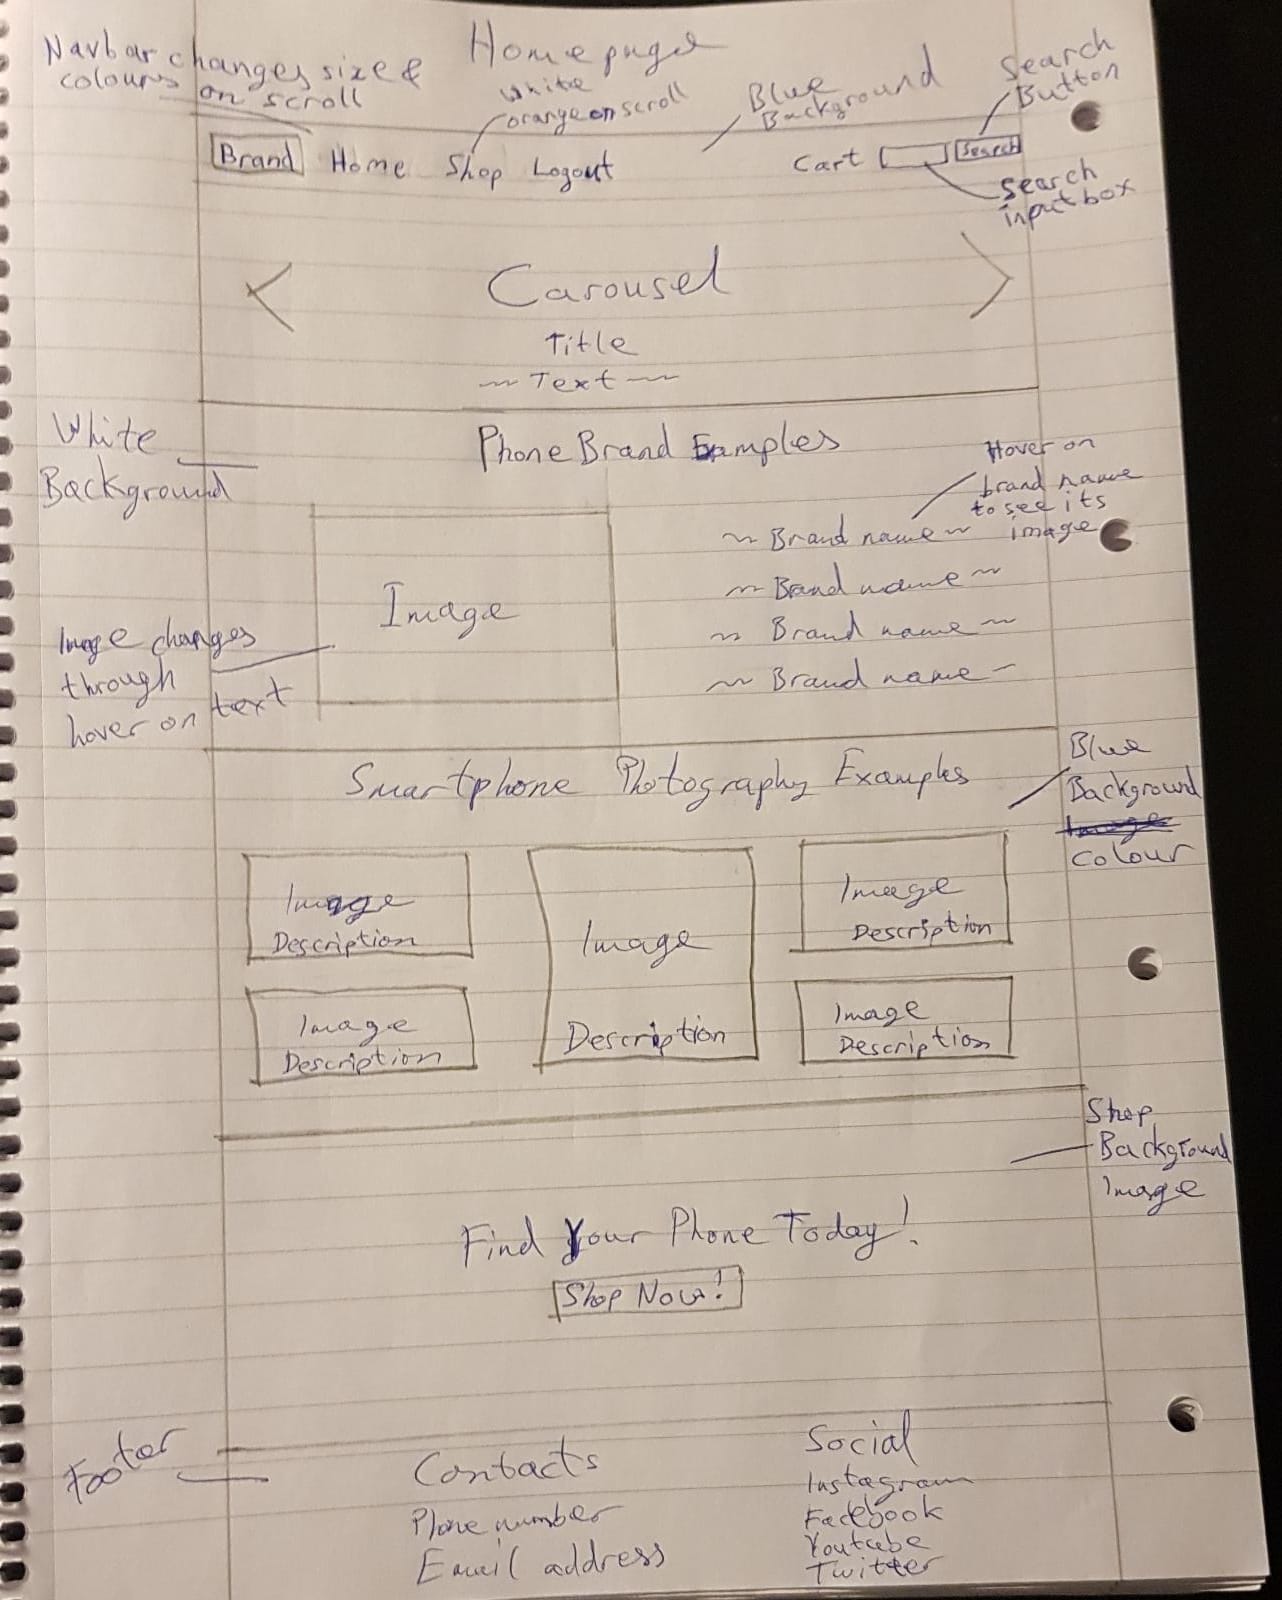 Homepage
Navbar changes size &
colours on scroll
White
orange on scroll
Blue
Background
Search
Button
Brand Home Shop Logout Cart Search
Search
input box
Carousel
Title
Text
White
Background
Phone Brand Examples
Hover on
brand name
to see its
image
Brand name
Brand name
Brand name
Brand name
Image
Image changes
through
hover on text
Smartphone Photography Examples
Blue
Background
colour
Image
Description
Image
Description
Image
Description
Image
Description
Image
Description
Shop
Background
Image
Find Your Phone Today!
Shop Now!
Footer
Contacts
Phone number
Email address
Social
Instagram
Facebook
Youtube
Twitter